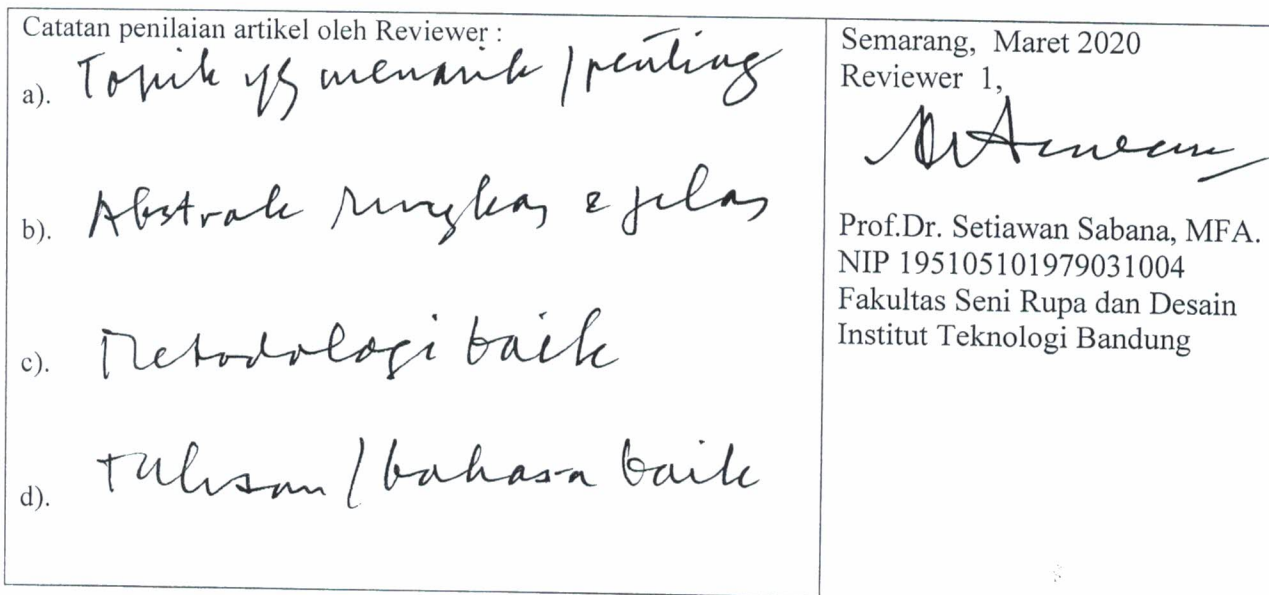 Catatan penilaian artikel oleh Reviewer :
a). Topik yg menarik / penting
b). Abstrak ringkas & jelas
c). Metodologi baik
d). Tulisan / bahasa baik
Semarang, Maret 2020
Reviewer 1,
Prof.Dr. Setiawan Sabana, MFA.
NIP 195105101979031004
Fakultas Seni Rupa dan Desain
Institut Teknologi Bandung